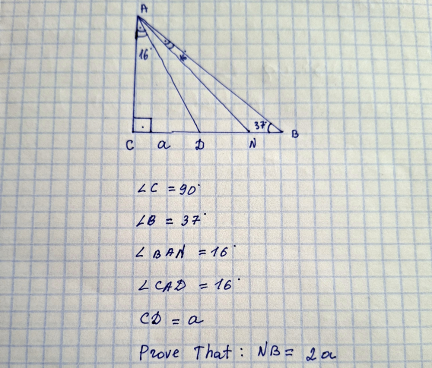 A
16°
16°
37°
C a D N B
∠C = 90°
∠B = 37°
∠BAN = 16°
∠CAD = 16°
CD = a
Prove That: NB = 2a